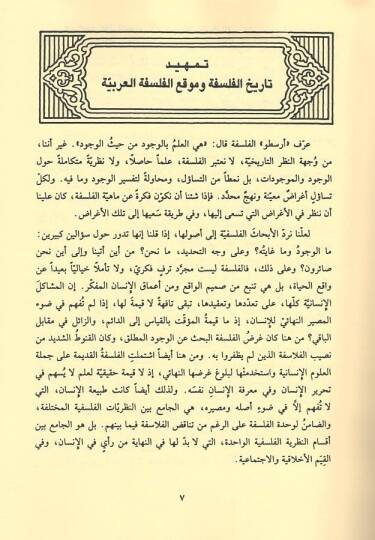 تمهيد
تاريخ الفلسفة وموقع الفلسفة العربيّة
عرّف «أرسطو» الفلسفة قال: «هي العلمُ بالوجود من حيثُ الوجود». غير أننا،
من وُجهة النظر التاريخيّة، لا نعتبر الفلسفة، علماً حاصلاً، ولا نظريّةً متكاملةً حول
الوجود والموجودات، بل نمطاً من التساؤل، ومحاولةً لتفسير الوجود وما فيه. ولكلّ
تساؤلٍ أغراضٌ معيّنة ونهجٌ محدَّد. فإذا شئنا أن نكوّن فكرةً عن ماهيّة الفلسفة، كان علينا
أن ننظر في الأغراض التي تسعى إليها، وفي طريقة سَعيها إلى تلك الأغراض.
لعلّنا نردّ الأبحاثَ الفلسفيّة إلى أصولها، إذا قلنا إنها تدور حول سؤالين كبيرين:
ما الوجودُ وما غايتُه؟ وعلى وجه التحديد، ما نحن؟ من أين أتينا وإلى أين نحن
صائرون؟ وعلى ذلك، فالفلسفة ليست مجرَّد ترفٍ فكريّ، ولا تأملاً خياليّاً بعيداً عن
واقع الحياة، بل هي تنبع من صميم الواقع ومن أعماق الإنسان المفكّر. إن المشاكلَ
الإنسانيّة كلّها، على تعدّدها وتعقيدها، تبقى تافهةً لا قيمةَ لها، إذا لم تُفهم في ضوء
المصير النهائيّ للإنسان، إذ ما قيمةُ المؤقّت بالقياس إلى الدائم، والزائل في مقابل
الباقي؟ من هنا كان غرضُ الفلسفة البحث عن الوجود المطلق، وكان القنوطُ الشديد من
نصيب الفلاسفة الذين لم يظفروا به. ومن هنا أيضاً اشتملتِ الفلسفةُ القديمة على جملة
العلوم الإنسانية واستخدمتْها لبلوغ غرضها النهائي، إذ لا قيمة حقيقيّة لعلم لا يُسهم في
تحرير الإنسان وفي معرفة الإنسان نفسَه. ولذلك أيضاً كانت طبيعة الإنسان، التي
لا تُفهم إلاّ في ضوء أصله ومصيره، هي الجامع بين النظريّات الفلسفية المختلفة،
والضامنُ لوحدة الفلسفة على الرغم من تناقض الفلاسفة فيما بينهم. بل هو الجامع بين
أقسام النظرية الفلسفية الواحدة، التي لا بدّ لها في النهاية من رأيٍ في الإنسان، وفي
القِيَم الأخلاقية والاجتماعية.
٧